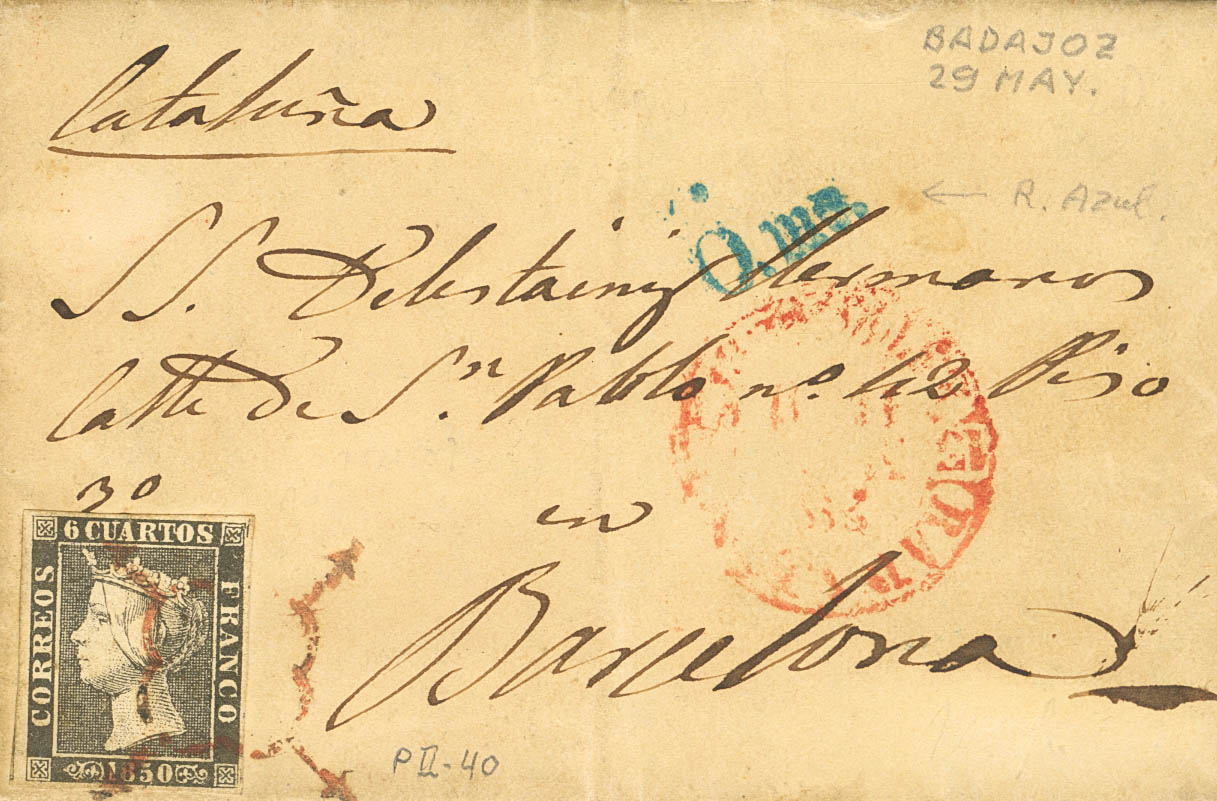 BADAJOZ
29 MAY.
Cataluña
← R. Azul.
O.ms.
SS. Hermanos
Calle de Sn. Pablo nº. 42 Piso
3º
en
Barcelona
6 CUARTOS
CORREOS
FRANCO
1850
PII-40